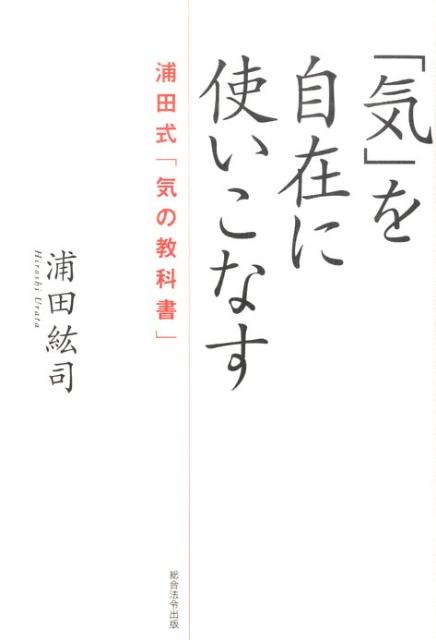 「気」を
自在に
使いこなす
浦田式「気の教科書」
浦田紘司
Hiroshi Urata
総合法令出版